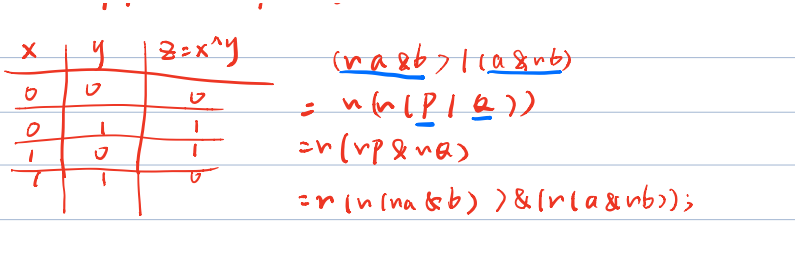 x y z=x^y
0 0 0
0 1 1
1 0 1
1 1 0
(~a&b)|(a&~b)
= ~(~(P|Q))
=~(~P&~Q)
=~(~(~a&b))&(~(a&~b));